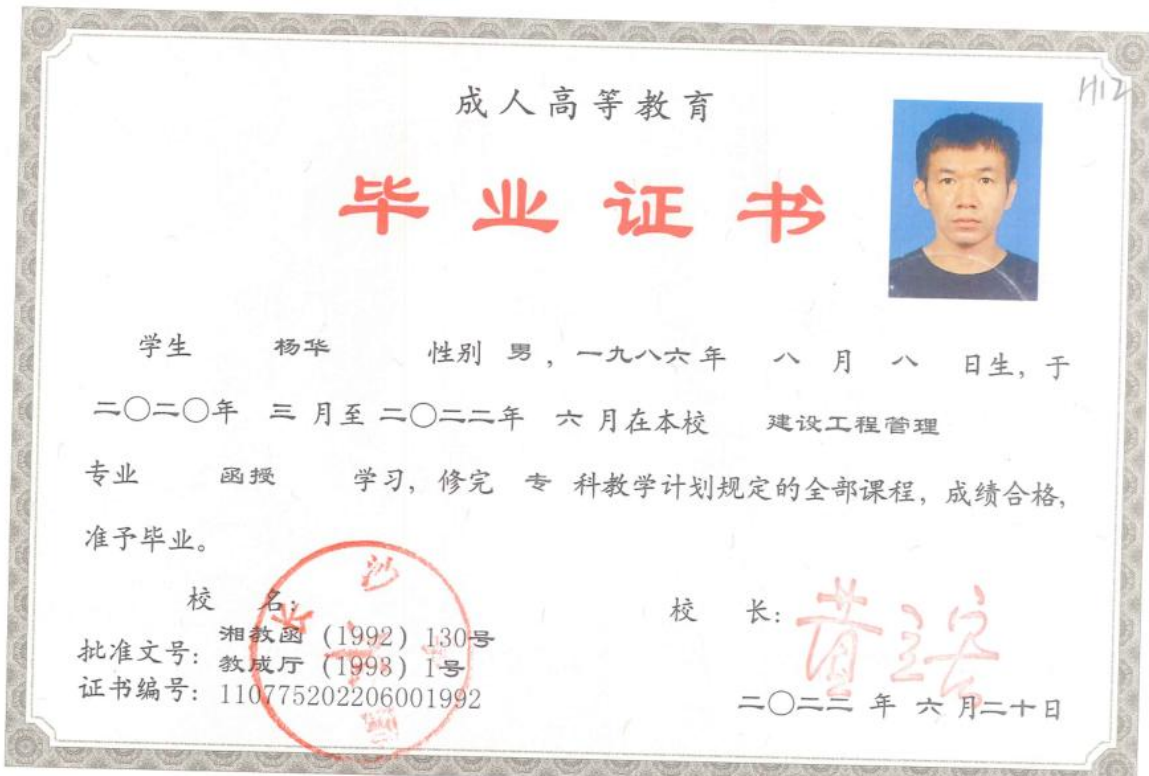 H12
成人高等教育
毕业证书
学生 杨华 性别 男，一九八六年 八 月 八 日生，于
二〇二〇年 三 月至 二〇二二年 六 月在本校 建设工程管理
专业 函授 学习，修完 专 科教学计划规定的全部课程，成绩合格，
准予毕业。
校 名：
校 长：
批准文号：湘教函（1992）130号
教成厅（1993）1号
证书编号：110775202206001992
二〇二二 年 六 月二十日
长沙